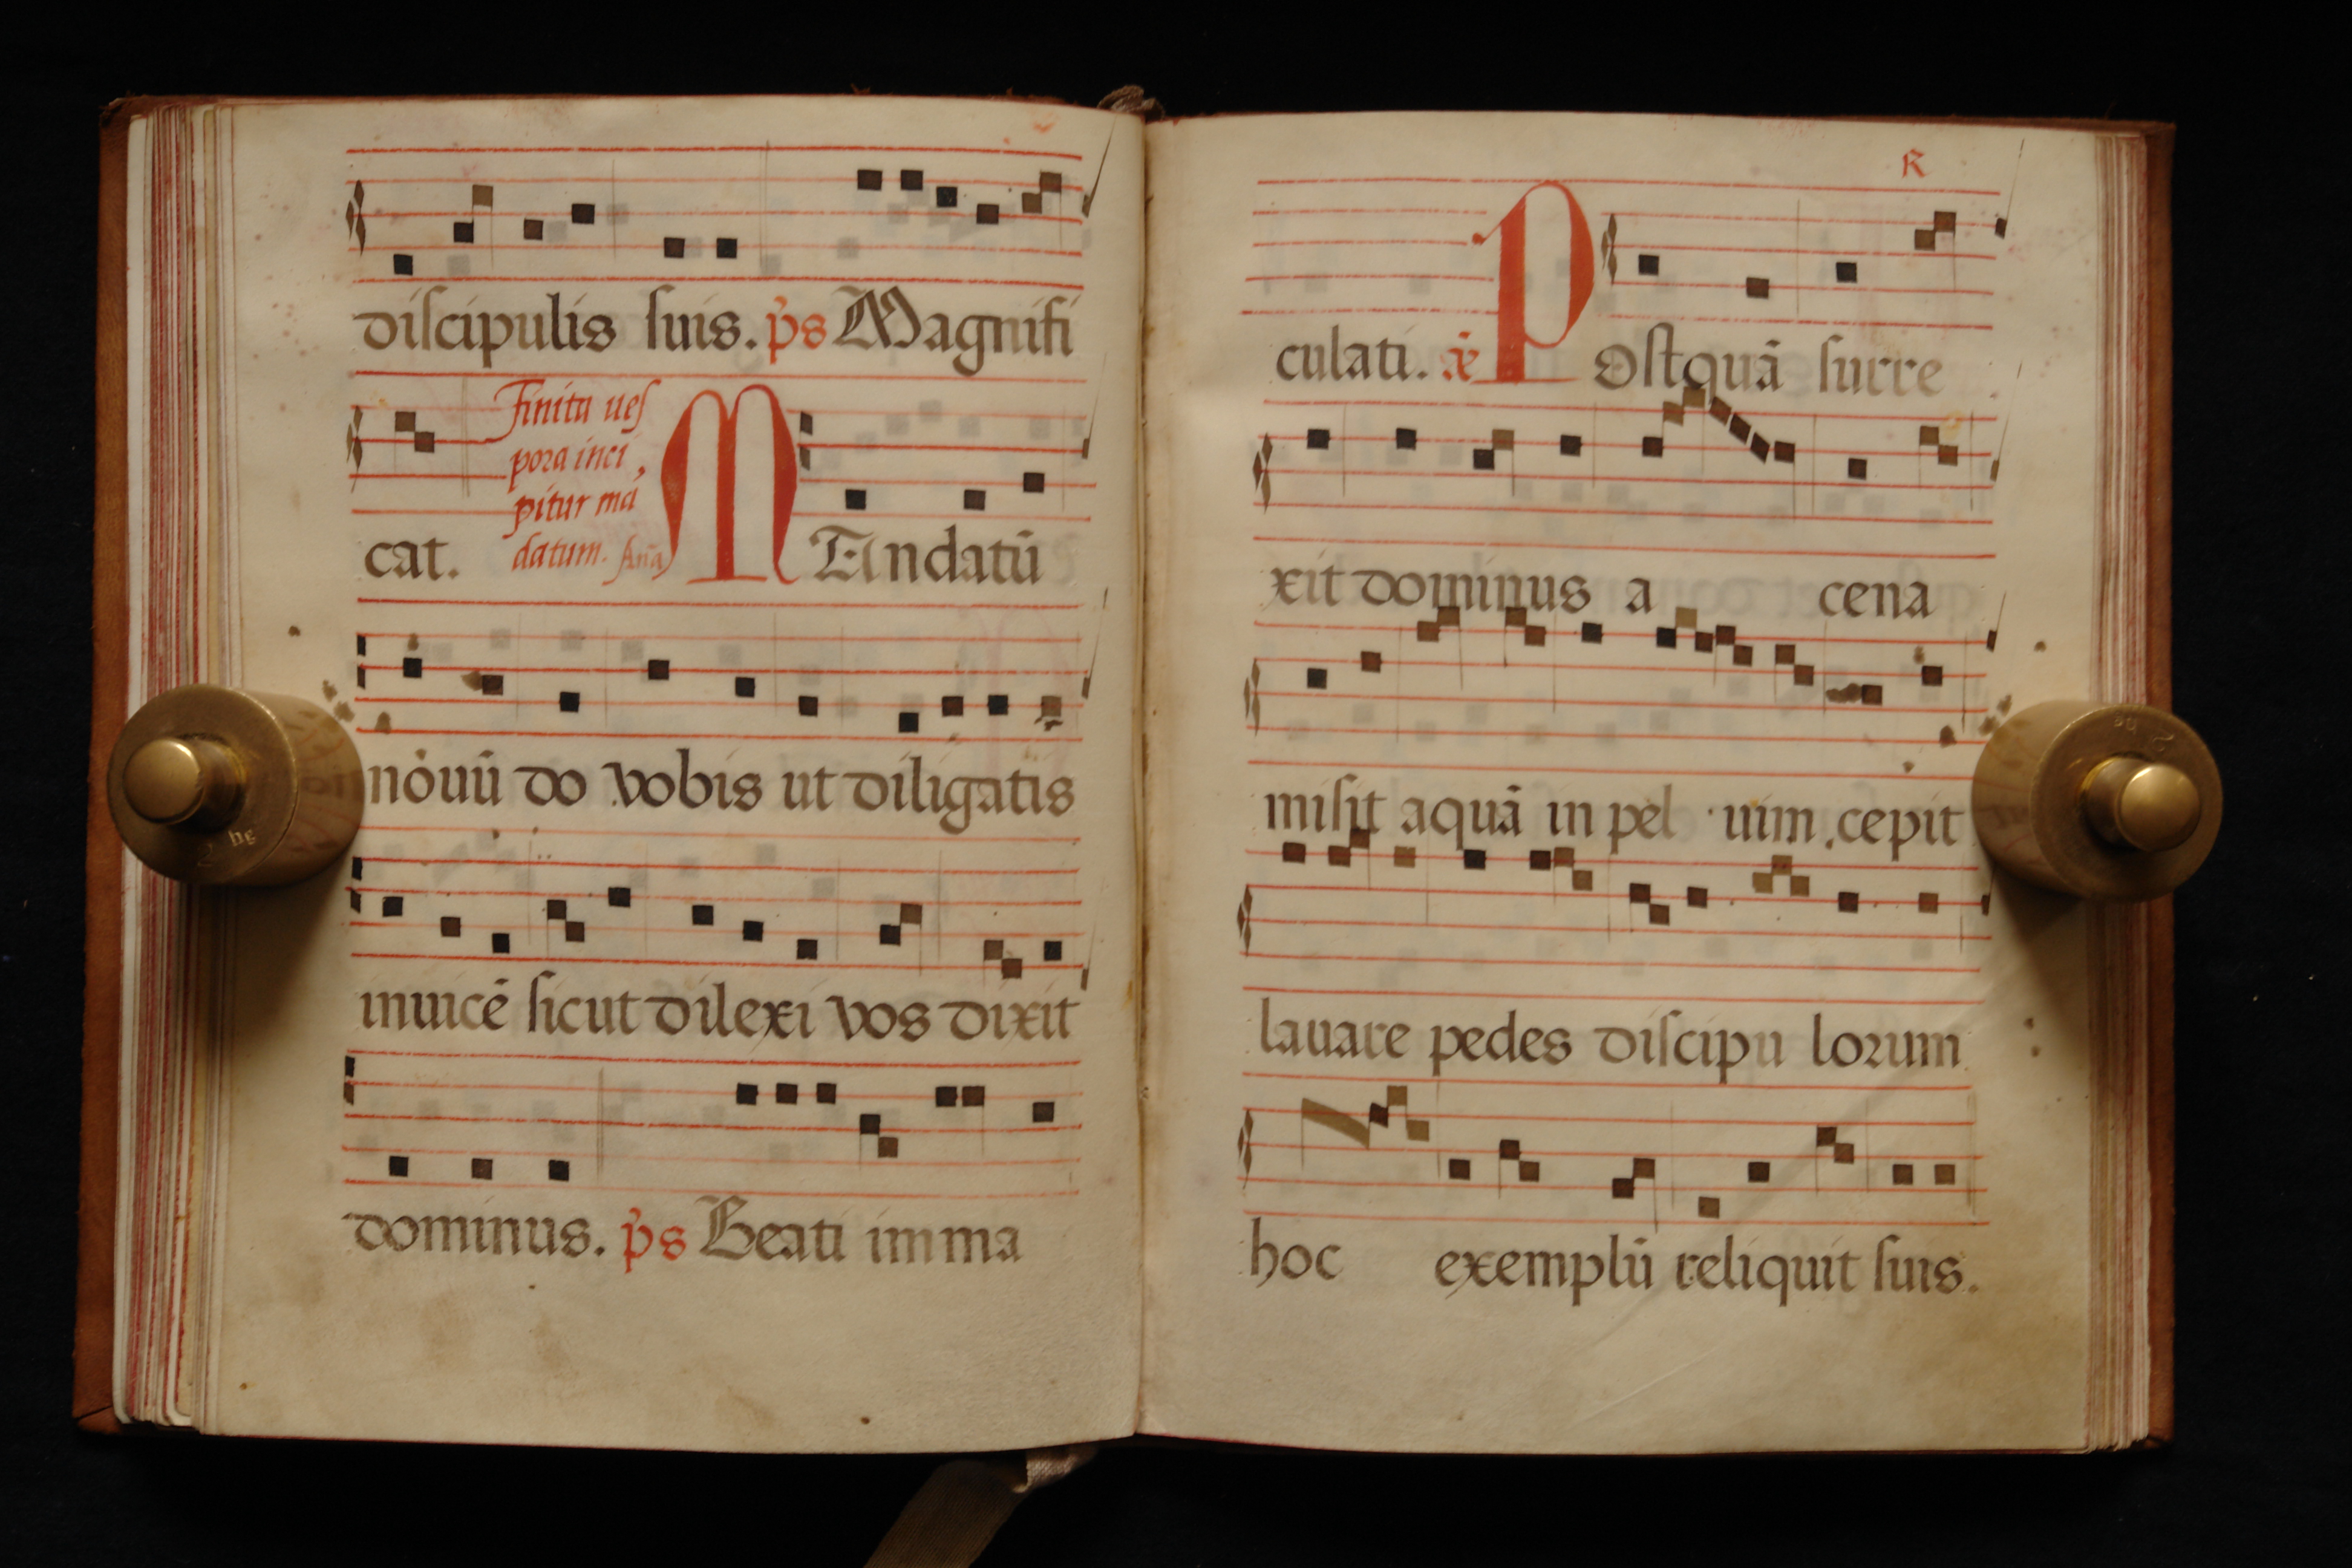 diſcipulis ſuis. p̄s Magnifi
Finita ueſ
pora inci
pitur mā
datum. Ana
cat. MAndatū
nouū do vobis ut diligatis
inuicē ſicut dilexi vos dixit
dominus. p̄s Beati imma
R
culati. POſtquā ſurre
xit dominus a cena
miſit aquā in pel uim, cepit
lauare pedes diſcipu lorum
hoc exemplū reliquit ſuis.